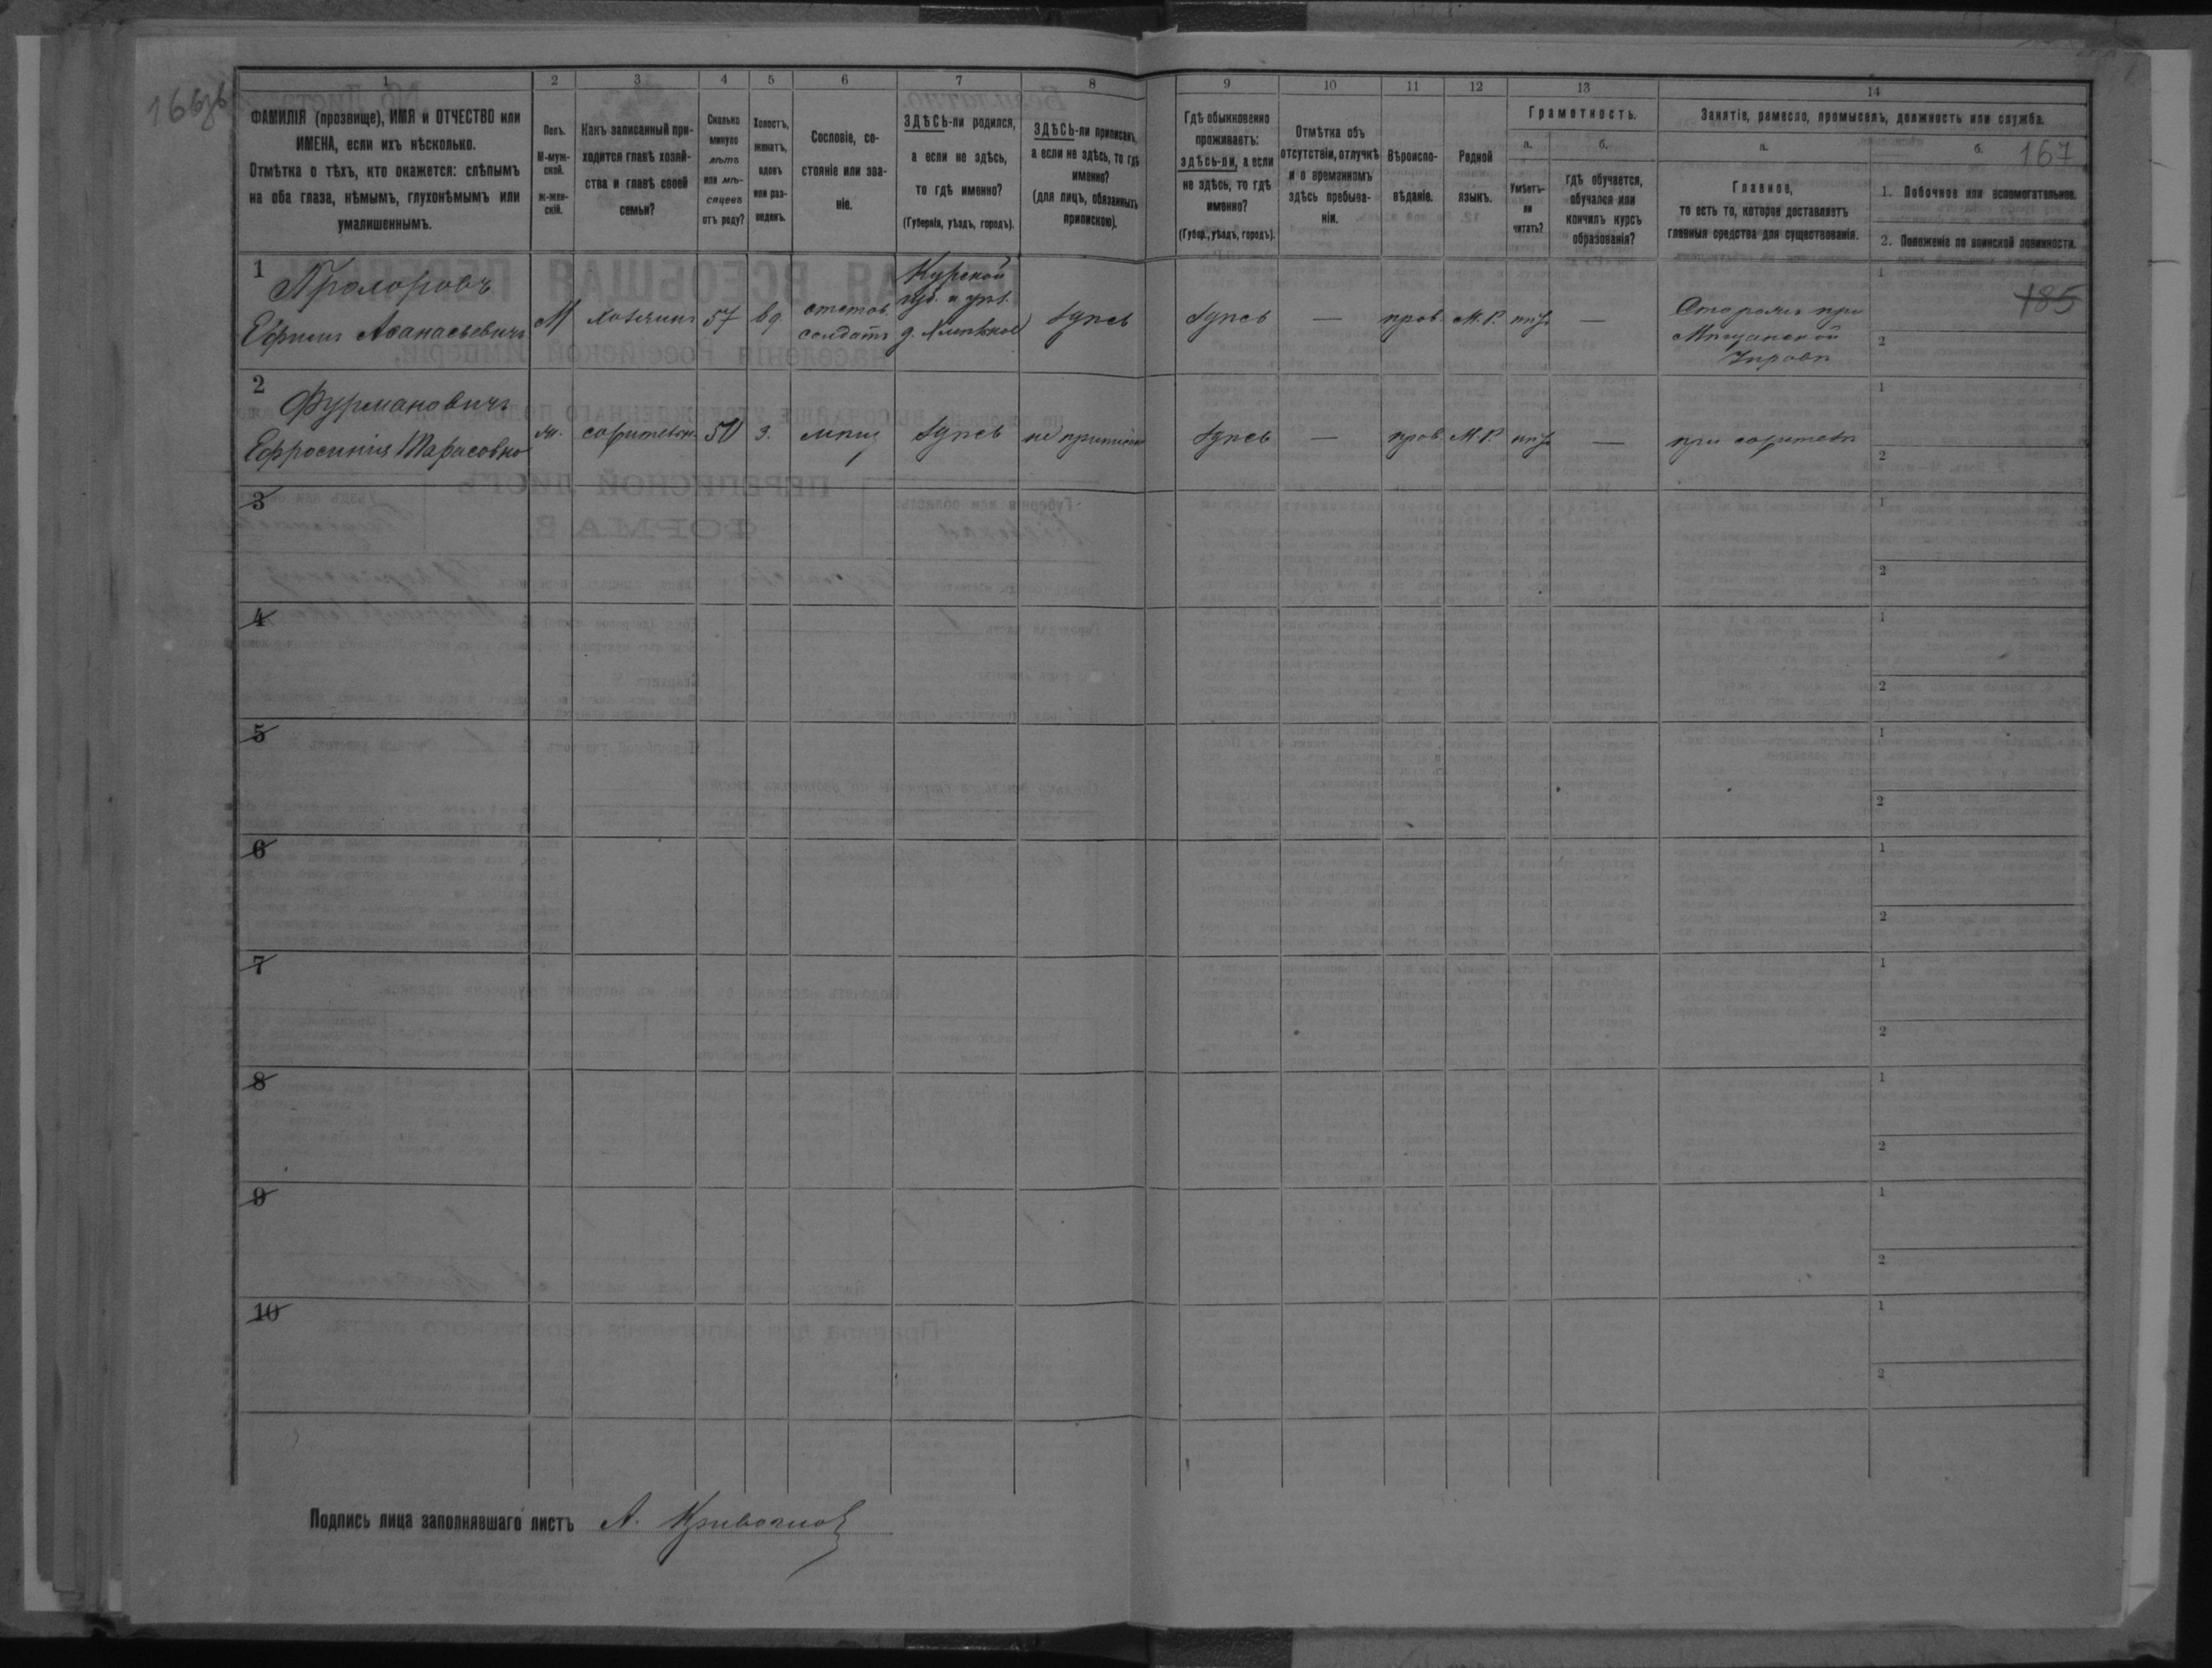 166зв
1
2
3
4
5
6
7
8
9
10
11
12
13
14
ФАМИЛІЯ (прозвище), ИМЯ и ОТЧЕСТВО или
ИМЕНА, если ихъ нѣсколько.
Отмѣтка о тѣхъ, кто окажется: слѣпымъ
на оба глаза, нѣмымъ, глухонѣмымъ или
умалишеннымъ.
Полъ.
М-муж-
ской.
ж-жен-
скій.
Какъ записанный при-
ходится главѣ хозяй-
ства и главѣ своей
семьи?
Сколько
минуло
лѣтъ
или мѣ-
сяцевъ
отъ роду?
Холостъ,
женатъ,
вдовъ
или раз-
веденъ.
Сословіе, со-
стояніе или зва-
ніе.
ЗДѢСЬ-ли родился,
а если не здѣсь,
то гдѣ именно?
(Губернія, уѣздъ, городъ).
ЗДѢСЬ-ли приписанъ,
а если не здѣсь, то гдѣ
именно?
(для лицъ, обязанныхъ
припискою).
Гдѣ обыкновенно
проживаетъ:
здѣсь-ли, а если
не здѣсь, то гдѣ
именно?
(Губер., уѣздъ, городъ).
Отмѣтка объ
отсутствіи, отлучкѣ
и о временномъ
здѣсь пребыва-
ніи.
Вѣроиспо-
вѣданіе.
Родной
языкъ.
Грамотность.
а.
Умѣетъ-
ли
читать?
б.
гдѣ обучается,
обучался или
кончилъ курсъ
образованія?
Занятіе, ремесло, промыселъ, должность или служба.
а.
Главное,
то есть то, которое доставляетъ
главныя средства для существованія.
б.
167
1. Побочное или вспомогательное.
2. Положеніе по воинской повинности.
1
Прохоровъ
Ефимъ Аѳанасьевичъ
М
хозяинъ
57
вд.
отстав.
солдатъ
Курской
губ. и уѣз.
д.
здѣсь
здѣсь
—
прав.
М.Р.
нѣтъ
—
Сторожъ при
Мѣщанской
Управѣ
1
185
2
2
Фурмановичъ
Ефросинія Тарасовна
ж.
сожител.
50
з.
мѣщ
здѣсь
не приписан
здѣсь
—
прав.
М.Р.
нѣтъ
—
при сожителѣ
1
2
3
1
2
4
1
2
5
1
2
6
1
2
7
1
2
8
1
2
9
1
2
10
1
2
Подпись лица заполнявшаго листъ А.